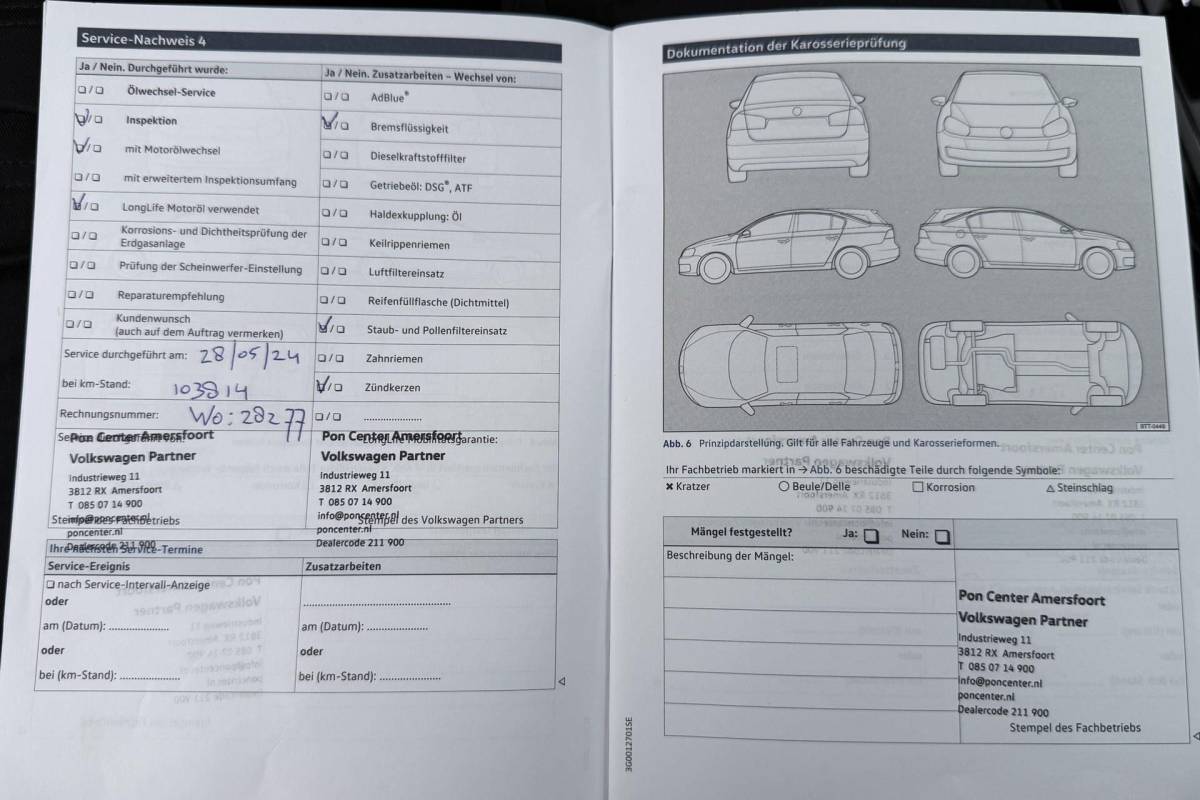 Service-Nachweis 4
Ja / Nein. Durchgeführt wurde:
Ölwechsel-Service
Inspektion
mit Motorölwechsel
mit erweitertem Inspektionsumfang
LongLife Motoröl verwendet
Korrosions- und Dichtheitsprüfung der
Erdgasanlage
Prüfung der Scheinwerfer-Einstellung
Reparaturempfehlung
Kundenwunsch
(auch auf dem Auftrag vermerken)
Service durchgeführt am: 28/05/24
bei km-Stand: 103814
Rechnungsnummer: Wo: 28277
Ja / Nein. Zusatzarbeiten – Wechsel von:
AdBlue®
Bremsflüssigkeit
Dieselkraftstofffilter
Getriebeöl: DSG®, ATF
Haldexkupplung: Öl
Keilrippenriemen
Luftfiltereinsatz
Reifenfüllflasche (Dichtmittel)
Staub- und Pollenfiltereinsatz
Zahnriemen
Zündkerzen
......................
Pon Center Amersfoort
Volkswagen Partner
Industrieweg 11
3812 RX Amersfoort
T 085 07 14 900
info@poncenter.nl
Stempel des Fachbetriebs
poncenter.nl
Dealercode 211 900
Pon Center Amersfoort
Volkswagen Partner
Industrieweg 11
3812 RX Amersfoort
T 085 07 14 900
info@poncenter.nl
Stempel des Volkswagen Partners
poncenter.nl
Dealercode 211 900
Ihre nächsten Service-Termine
Service-Ereignis
nach Service-Intervall-Anzeige
oder
am (Datum): ....................
oder
bei (km-Stand): ....................
Zusatzarbeiten
..................................................
am (Datum): ....................
oder
bei (km-Stand): ....................
Dokumentation der Karosserieprüfung
BTT-0448
Abb. 6 Prinzipdarstellung. Gilt für alle Fahrzeuge und Karosserieformen.
Ihr Fachbetrieb markiert in → Abb. 6 beschädigte Teile durch folgende Symbole:
Kratzer
Beule/Delle
Korrosion
Steinschlag
Mängel festgestellt? Ja: Nein:
Beschreibung der Mängel:
Pon Center Amersfoort
Volkswagen Partner
Industrieweg 11
3812 RX Amersfoort
T 085 07 14 900
info@poncenter.nl
poncenter.nl
Dealercode 211 900
Stempel des Fachbetriebs
3G0012701SE